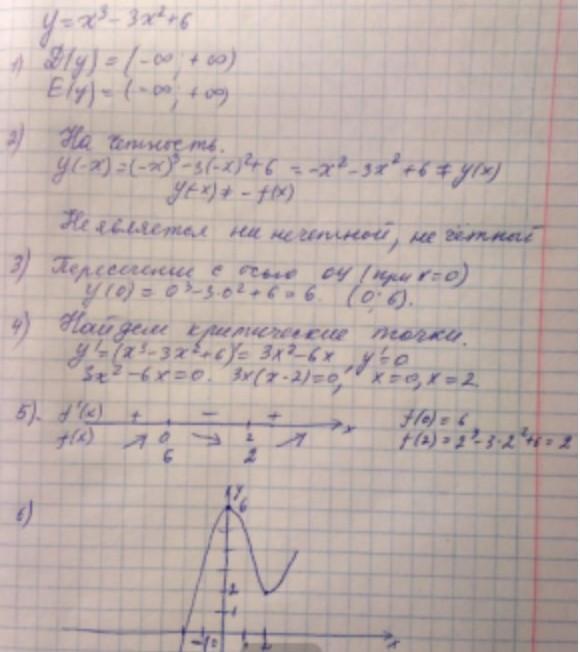 y = x³ - 3x² + 6
1) D(y) = (-∞; +∞)
E(y) = (-∞; +∞)
2) На четность.
y(-x) = (-x)³ - 3(-x)² + 6 = -x² - 3x² + 6 ≠ y(x)
y(-x) ≠ - f(x)
Не является ни нечетной, не чётной
3) Пересечение с осью оу (при x=0)
y(0) = 0³ - 3·0² + 6 = 6. (0; 6).
4) Найдем критические точки.
y' = (x³ - 3x² + 6)' = 3x² - 6x, y' = 0
3x² - 6x = 0. 3x(x-2) = 0, x = 0, x = 2.
5). f'(x) + - + x f(0) = 6
f(x) ↗ 0 ↘ 2 ↗ f(2) = 2³ - 3·2² + 6 = 2
6 2
6) y
6
2
1
-1 2 x